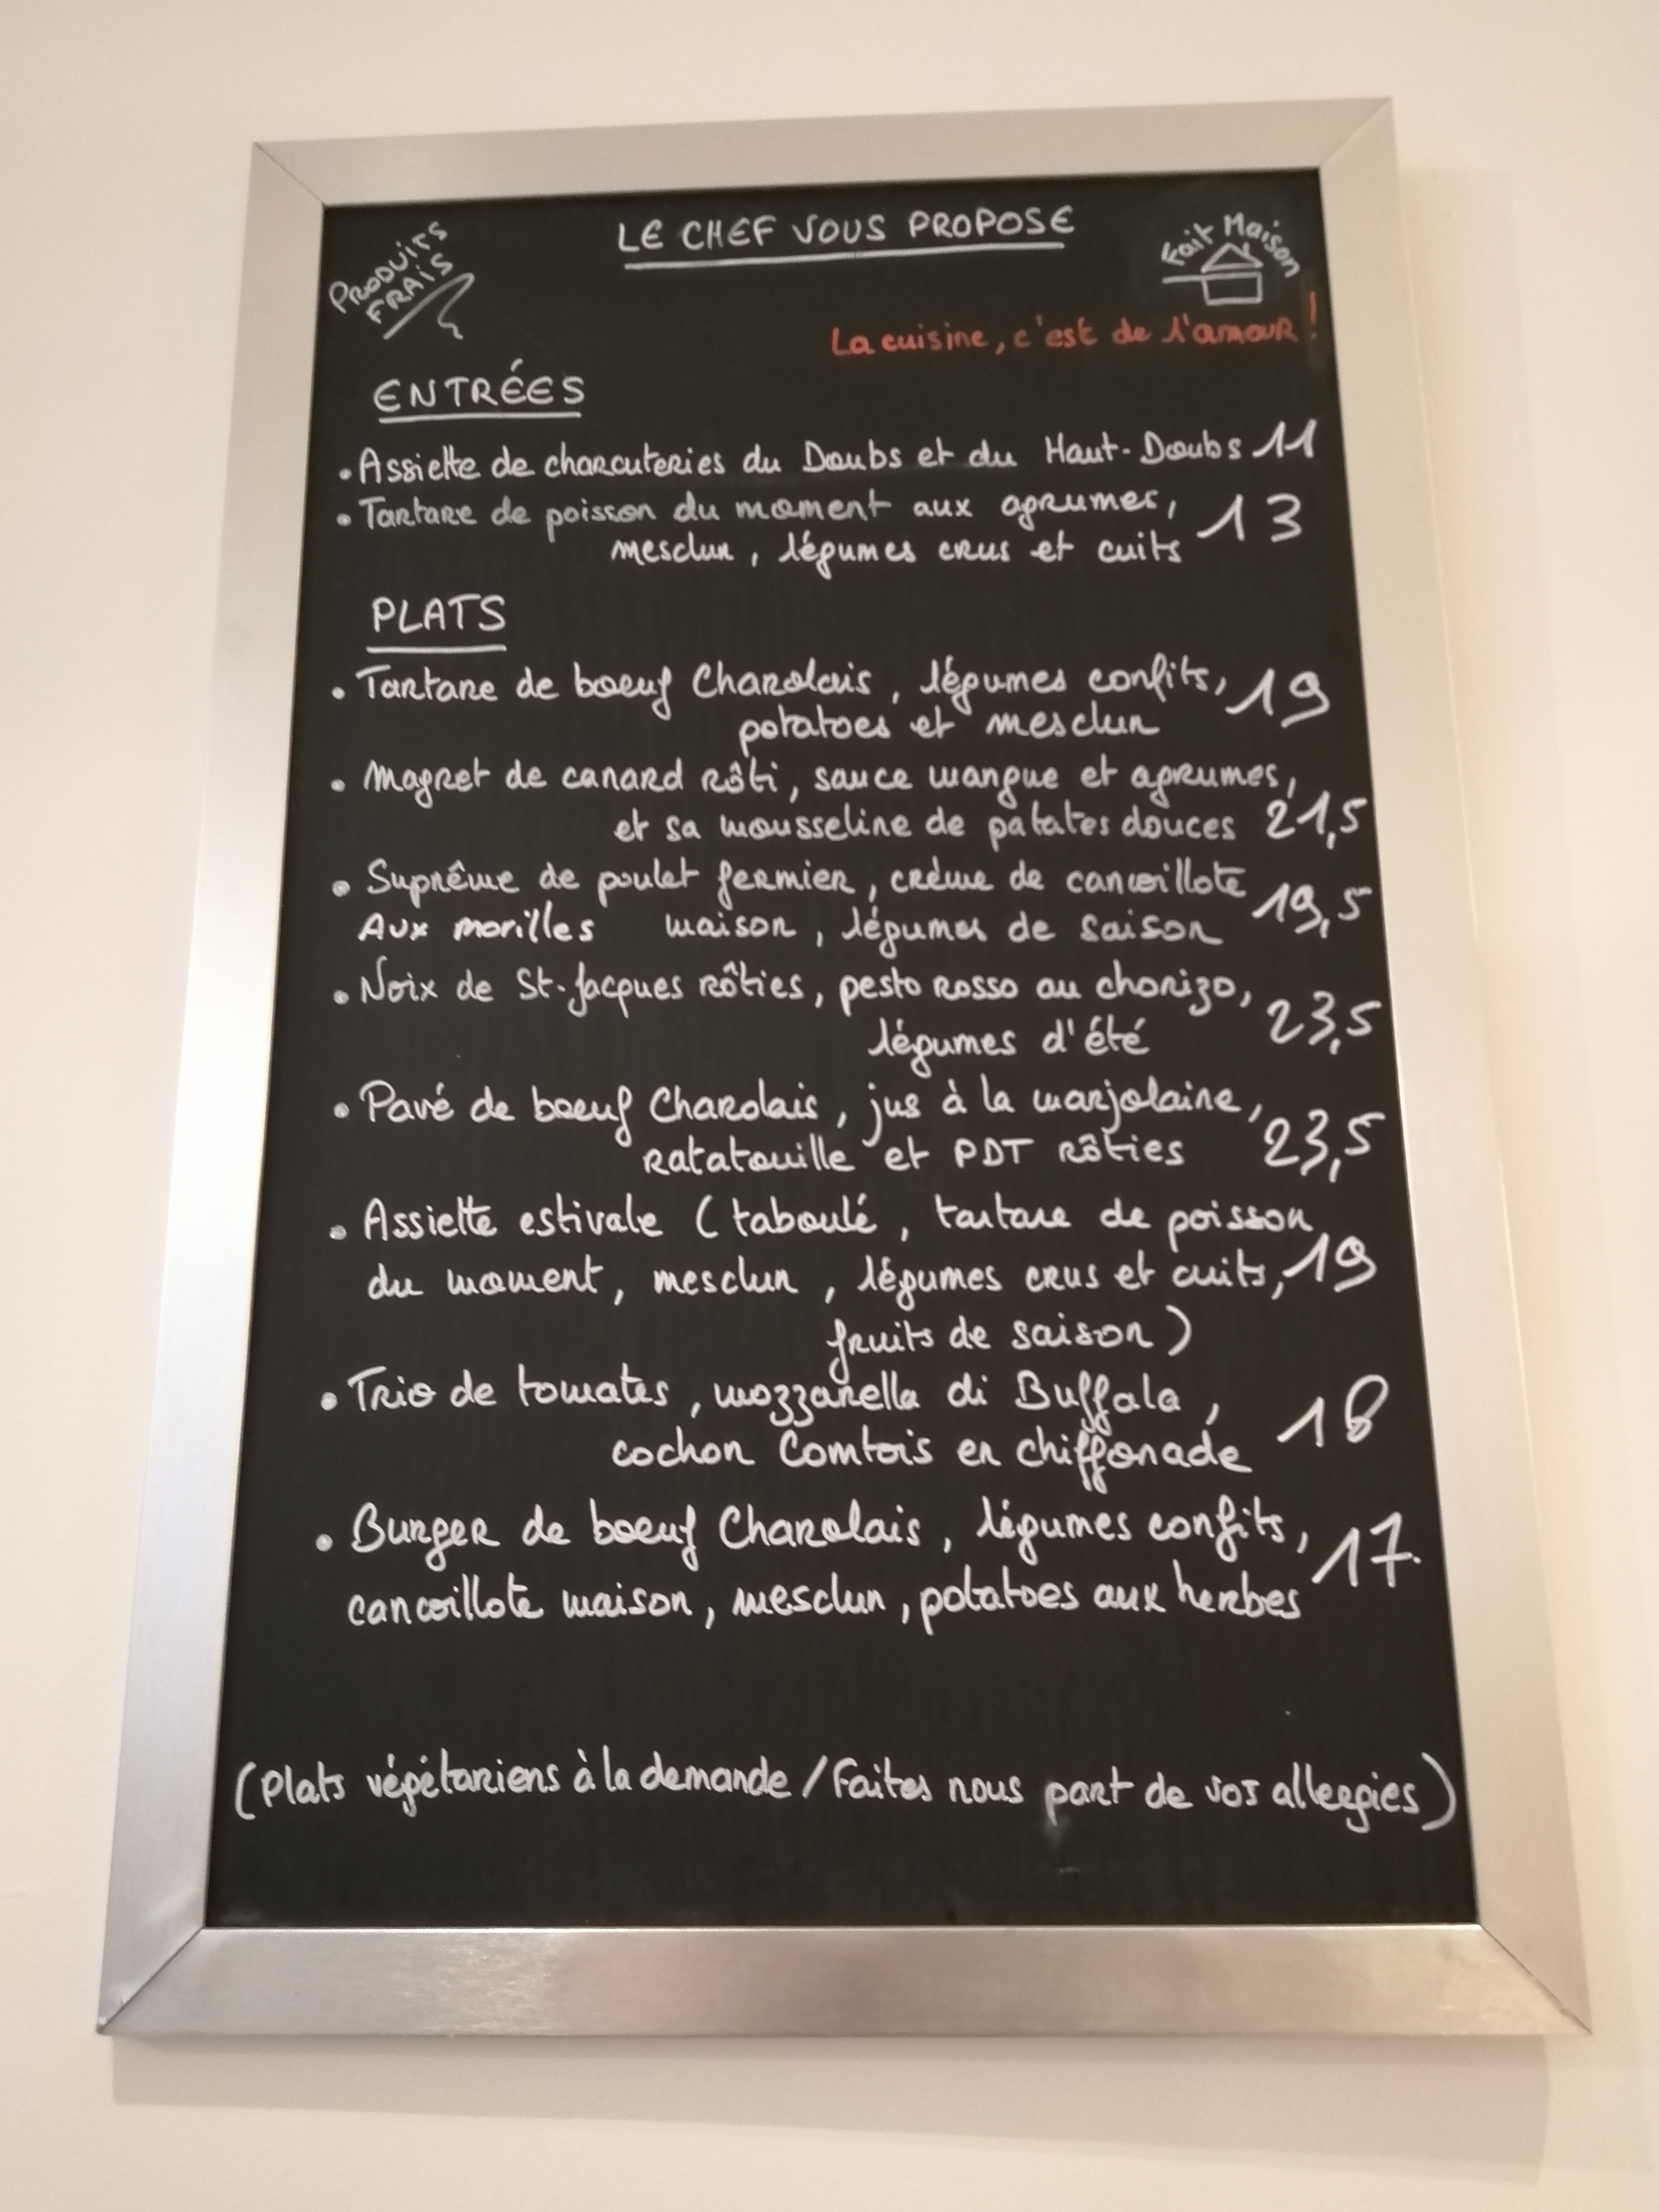 PRODUITS
FRAIS
LE CHEF VOUS PROPOSE
Fait Maison
La cuisine, c'est de l'amour !
ENTRÉES
• Assiette de charcuteries du Doubs et du Haut-Doubs 11
• Tartare de poisson du moment aux agrumes,
mesclun, légumes crus et cuits 13
PLATS
• Tartare de boeuf Charolais, légumes confits, 19
potatoes et mesclun
• Magret de canard rôti, sauce mangue et agrumes,
et sa mousseline de patates douces 21,5
• Suprême de poulet fermier, crème de cancoillote 19,5
Aux morilles maison, légumes de saison
• Noix de St-Jacques rôties, pesto rosso au chorizo, 23,5
légumes d'été
• Pavé de boeuf Charolais, jus à la marjolaine,
ratatouille et PDT rôties 23,5
• Assiette estivale (taboulé, tartare de poisson
du moment, mesclun, légumes crus et cuits, 19
fruits de saison)
• Trio de tomates, mozzarella di Buffala, 18
cochon Comtois en chiffonade
• Burger de boeuf Charolais, légumes confits, 17.
cancoillote maison, mesclun, potatoes aux herbes
(Plats végétariens à la demande / Faites nous part de vos allergies)